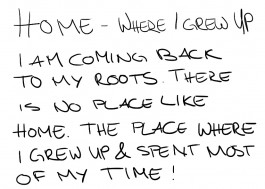 HOME - WHERE I GREW UP
I AM COMING BACK
TO MY ROOTS. THERE
IS NO PLACE LIKE
HOME. THE PLACE WHERE
I GREW UP & SPENT MOST
OF MY TIME!